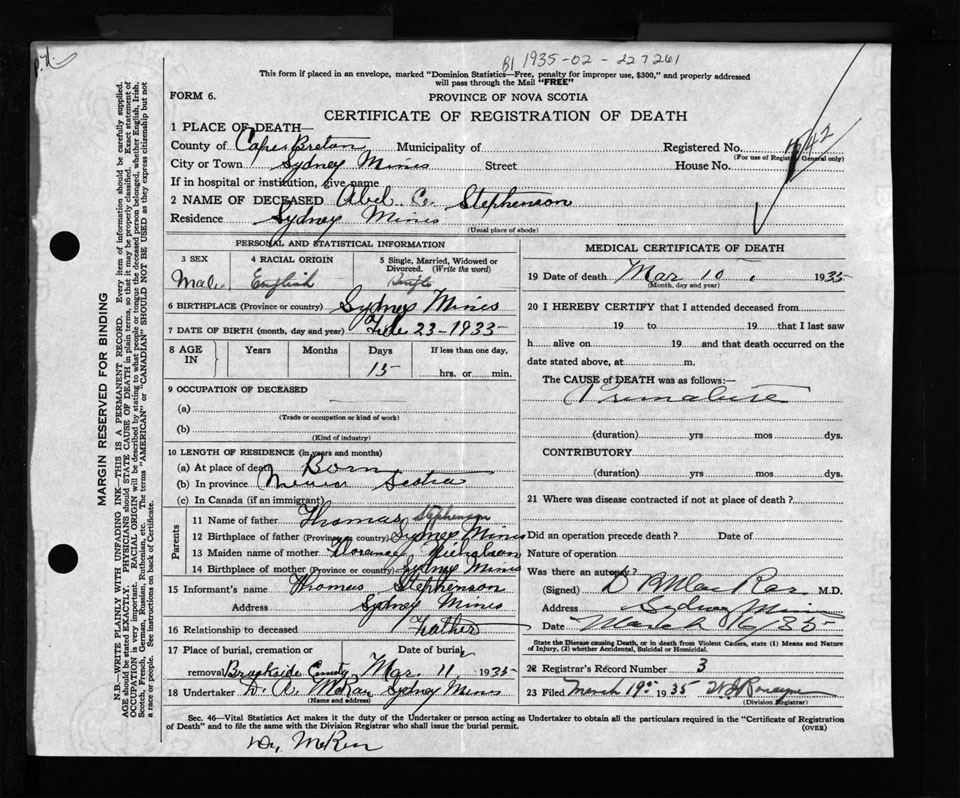 B1 1935-02-227261
This form if placed in an envelope, marked "Dominion Statistics—Free, penalty for improper use, $300," and properly addressed
will pass through the Mail "FREE"
FORM 6.
PROVINCE OF NOVA SCOTIA
CERTIFICATE OF REGISTRATION OF DEATH
1 PLACE OF DEATH—
County of Cape Breton Municipality of Registered No. 742
(For use of Registrar General only)
City or Town Sydney Mines Street House No.
If in hospital or institution, give name
2 NAME OF DECEASED Abel C. Stephenson
Residence Sydney Mines
(Usual place of abode)
PERSONAL AND STATISTICAL INFORMATION
3 SEX
Male
4 RACIAL ORIGIN
English
5 Single, Married, Widowed or
Divorced. (Write the word)
Single
6 BIRTHPLACE (Province or country) Sydney Mines
7 DATE OF BIRTH (month, day and year) Feb 23-1935
8 AGE IN Years Months Days If less than one day,
15 hrs. or min.
9 OCCUPATION OF DECEASED
(a)
(Trade or occupation or kind of work)
(b)
(Kind of industry)
10 LENGTH OF RESIDENCE (in years and months)
(a) At place of death Born
(b) In province Scotia
(c) In Canada (if an immigrant)
Parents
11 Name of father Thomas Stephenson
12 Birthplace of father (Province or country) Sydney Mines
13 Maiden name of mother Florence Nicholson
14 Birthplace of mother (Province or country) Sydney Mines
15 Informant's name Thomas Stephenson
Address Sydney Mines
16 Relationship to deceased Father
17 Place of burial, cremation or Date of burial
removal Brookside Cemetery Mar. 11, 1935
18 Undertaker D. A. McRae Sydney Mines
(Name and address)
MEDICAL CERTIFICATE OF DEATH
19 Date of death Mar 10, 1935
(Month, day and year)
20 I HEREBY CERTIFY that I attended deceased from
19 to 19 that I last saw
h alive on 19 and that death occurred on the
date stated above, at m.
The CAUSE of DEATH was as follows:—
Premature
(duration) yrs mos dys.
CONTRIBUTORY
(duration) yrs mos dys.
21 Where was disease contracted if not at place of death?
Did an operation precede death? Date of
Nature of operation
Was there an autopsy?
(Signed) M.D.
Address Sydney Mines
Date March 16/35
State the Disease causing Death, or in death from Violent Causes, state (1) Means and Nature
of Injury, (2) whether Accidental, Suicidal or Homicidal.
22 Registrar's Record Number 3
23 Filed March 19th 1935
(Division Registrar)
Sec. 46—Vital Statistics Act makes it the duty of the Undertaker or person acting as Undertaker to obtain all the particulars required in the "Certificate of Registration
of Death" and to file the same with the Division Registrar who shall issue the burial permit.
(OVER)
MARGIN RESERVED FOR BINDING
N.B.—WRITE PLAINLY WITH UNFADING INK—THIS IS A PERMANENT RECORD. Every item of information should be carefully supplied.
AGE should be stated EXACTLY. PHYSICIANS should STATE CAUSE OF DEATH in plain terms, so that it may be properly classified. Exact statement of
OCCUPATION is very important. RACIAL ORIGIN will be described by stating to what people or tongue the deceased person belonged, whether English, Irish,
Scotch, French, German, Russian, Ruthenian, etc. The terms "AMERICAN" or "CANADIAN" SHOULD NOT BE USED as they express citizenship but not
a race or people. See instructions on back of Certificate.